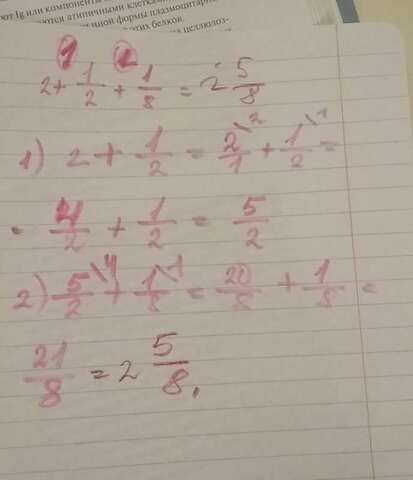 от Ig или компоненты
ются атипичными клетками
ной формы плазмоцитар
этих белков.
целлюлоз-
1 2
2 + 1/2 + 1/8 = 2 5/8
1) 2 + 1/2 = 2\2/1 + 1\1/2 =
4/2 + 1/2 = 5/2
2) 5\4/2 + 1\1/8 = 20/8 + 1/8 =
21/8 = 2 5/8.